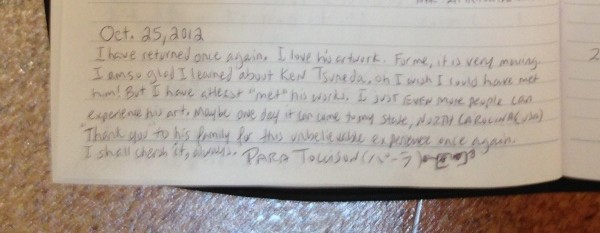 Oct. 25, 2012
I have returned once again. I love his artwork. For me, it is very moving.
I am so glad I learned about Ken Tsuneda. oh I wish I could have met
him! But I have atleast "met" his works. I just even more people can
experience his art. maybe one day it can come to my state, NORTH CAROLINA (USA)
Thank you to his family for this unbelievable experience once again.
I shall cherish it, always. PARA (パーラ)
2